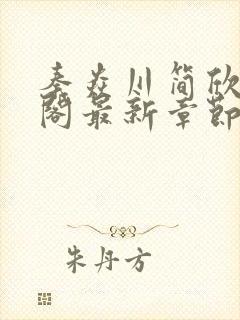 秦焱川简欣
阁最新章节
朱丹方